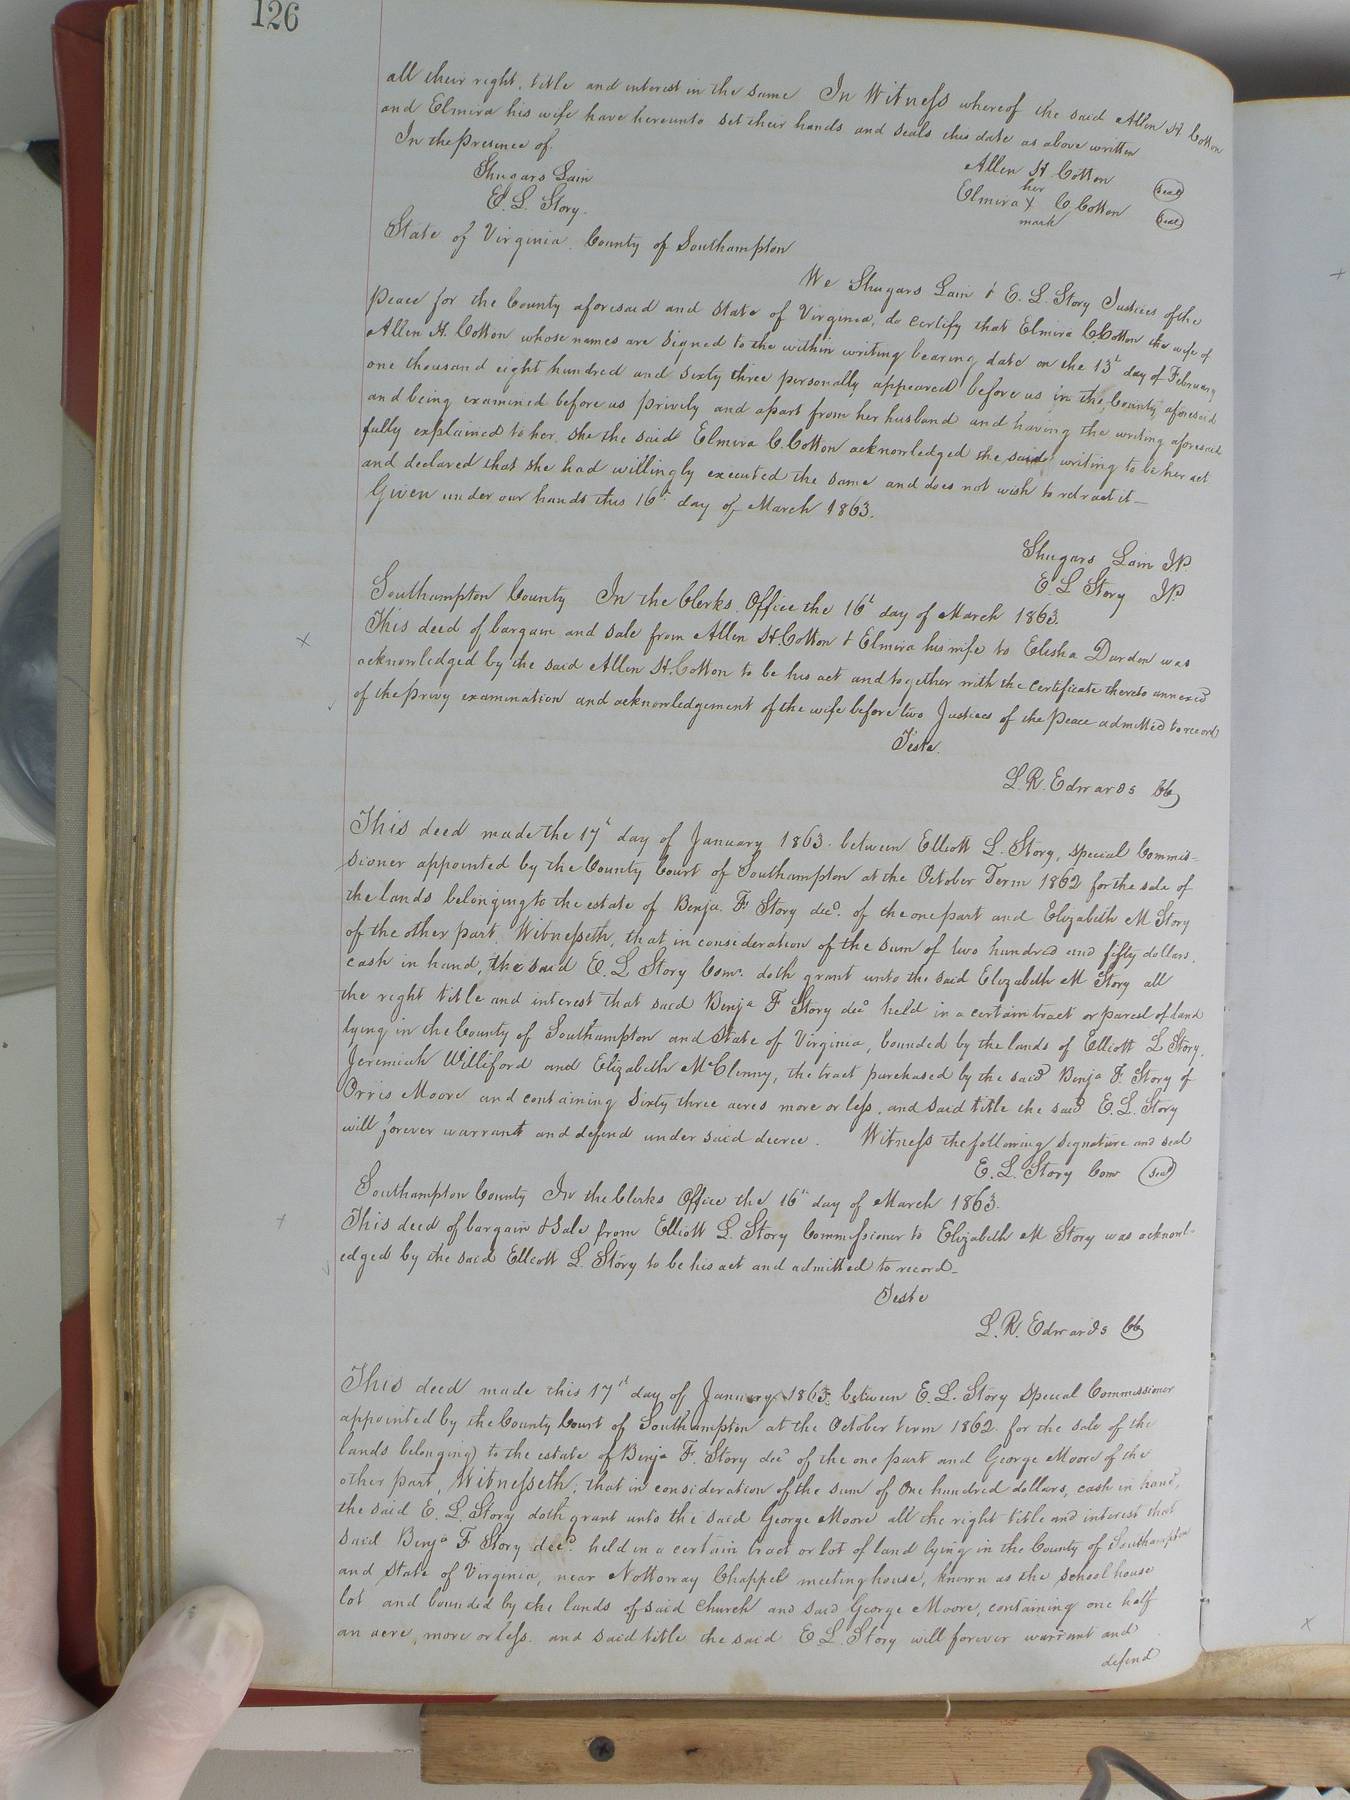 126
all their right, title and interest in the same In Witness whereof the said Allen H Cotton
and Elmira his wife have hereunto set their hands and seals this date as above written
In the presence of
Allen H. Cotton seal
Shugars Lain
her
Elmira X C Cotton seal
mark
E. L. Story.
State of Virginia. County of Southampton
We Shugars Lain & E. L. Story Justices of the
Peace for the County aforesaid and State of Virginia, do certify that Elmira C. Cotton the wife of
Allen H. Cotton whose names are signed to the within writing bearing date on the 13t day of February
one thousand eight hundred and sixty three personally appeared before us in the County aforesaid
and being examined before us privily and apart from her husband and having the writing aforesaid
fully explained to her, she the said Elmira C. Cotton acknowledged the said writing to be her act
and declared that she had willingly executed the same and does not wish to retract it—
Given under our hands this 16t day of March 1863.
Shugars Lain J.P.
E. L Story J.P.
Southampton County In the Clerks Office the 16t day of March 1863.
This deed of bargain and sale from Allen H. Cotton & Elmira his wife to Elisha Darden was
acknowledged by the said Allen H. Cotton to be his act and together with the certificate thereto annexed
of the privy examination and acknowledgement of the wife before two Justices of the Peace admitted to record
Teste.
L. R. Edwards CC
This deed made the 17t day of January 1863. between Elliott L. Story, special Commis=
sioner appointed by the County Court of Southampton at the October Term 1862 for the sale of
the lands belonging to the estate of Benja. F. Story decd. of the one part and Elizabeth M Story
of the other part, Witnesseth, that in consideration of the sum of two hundred and fifty dollars,
cash in hand, the said E. L Story Comr. doth grant unto the said Elizabeth M Story all
the right title and interest that said Benja F Story decd held in a certain tract or parcel of land
lying in the County of Southampton and State of Virginia, bounded by the lands of Elliott L Story,
Jeremiah Williford and Elizabeth McClenny, the tract purchased by the said Benja F. Story of
Orris Moore and containing sixty three acres more or less, and said title the said E. L. Story
will forever warrant and defend under said decree. Witness the following signature and seal
E. L. Story Comr seal
Southampton County In the Clerks Office the 16th day of March 1863.
This deed of bargain & sale from Elliott L. Story Commissioner to Elizabeth M Story was acknowl-
edged by the said Elliott L. Story to be his act and admitted to record—
Teste
L. R. Edwards CC
This deed made this 17th day of January 1863. between E. L. Story special Commissioner
appointed by the County Court of Southampton at the October term 1862. for the sale of the
lands belonging to the estate of Benja F. Story decd of the one part and George Moore of the
other part, Witnesseth; that in consideration of the sum of One hundred dollars, cash in hand,
the said E. L. Story doth grant unto the said George Moore all the right title and interest that
said Benja F Story decd. held in a certain tract or lot of land lying in the County of Southampton
and State of Virginia, near Nottoway Chappel meeting house, known as the school house
lot and bounded by the lands of said Church and said George Moore, containing one half
an acre, more or less. and said title the said E L. Story will forever warrant and
defend